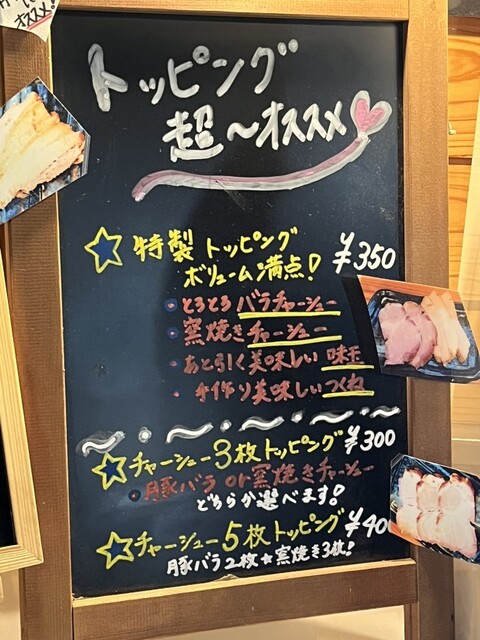 オススメ!
トッピング
超〜オススメ
特製トッピング ¥350
ボリューム満点!
・とろとろバラチャーシュー
・窯焼きチャーシュー
・あと引く美味しい味玉
・手作り美味しいつくね
チャーシュー3枚トッピング ¥300
・豚バラ or 窯焼きチャーシュー
どちらか選べます!
チャーシュー5枚トッピング ¥40
豚バラ2枚★窯焼き3枚!